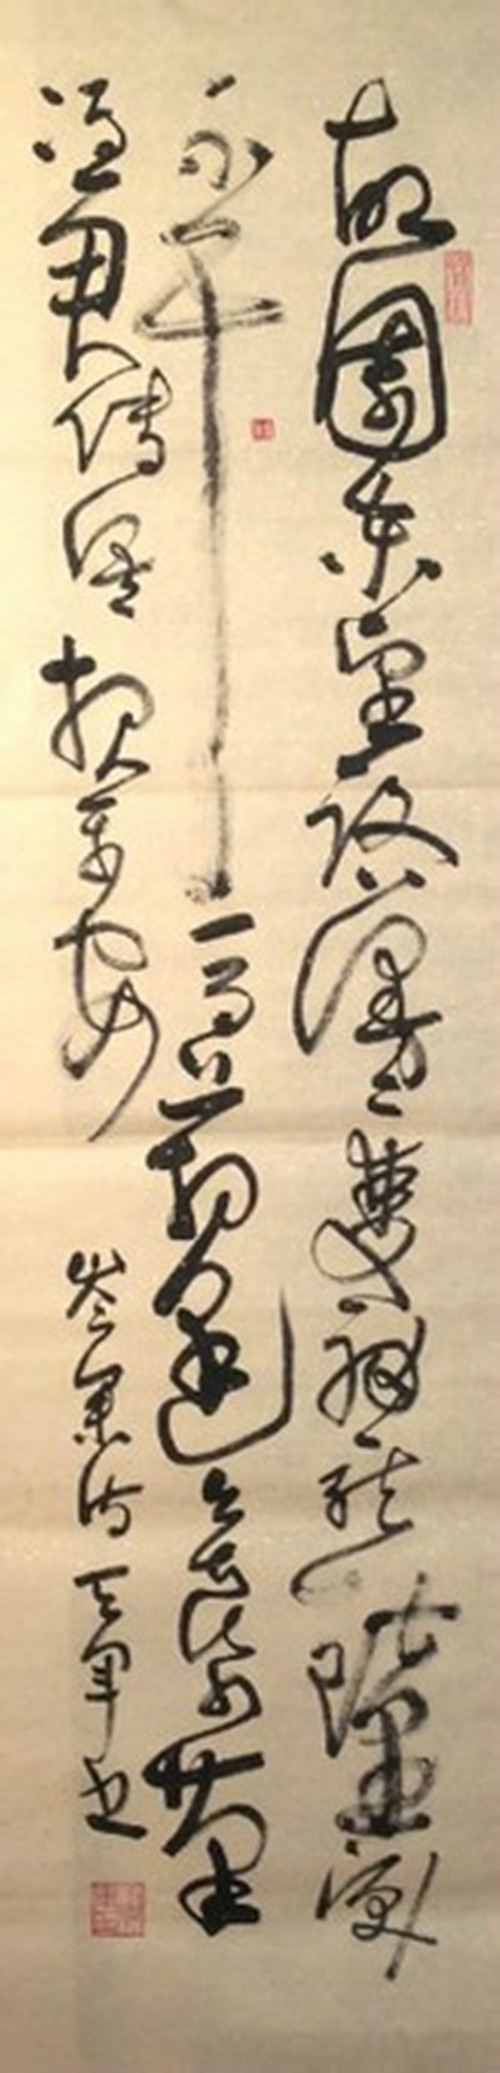 故園东望路漫漫雙袖龍鍾淚
不干馬上相逢無紙筆
憑君傳語報平安 岑參詩 军书